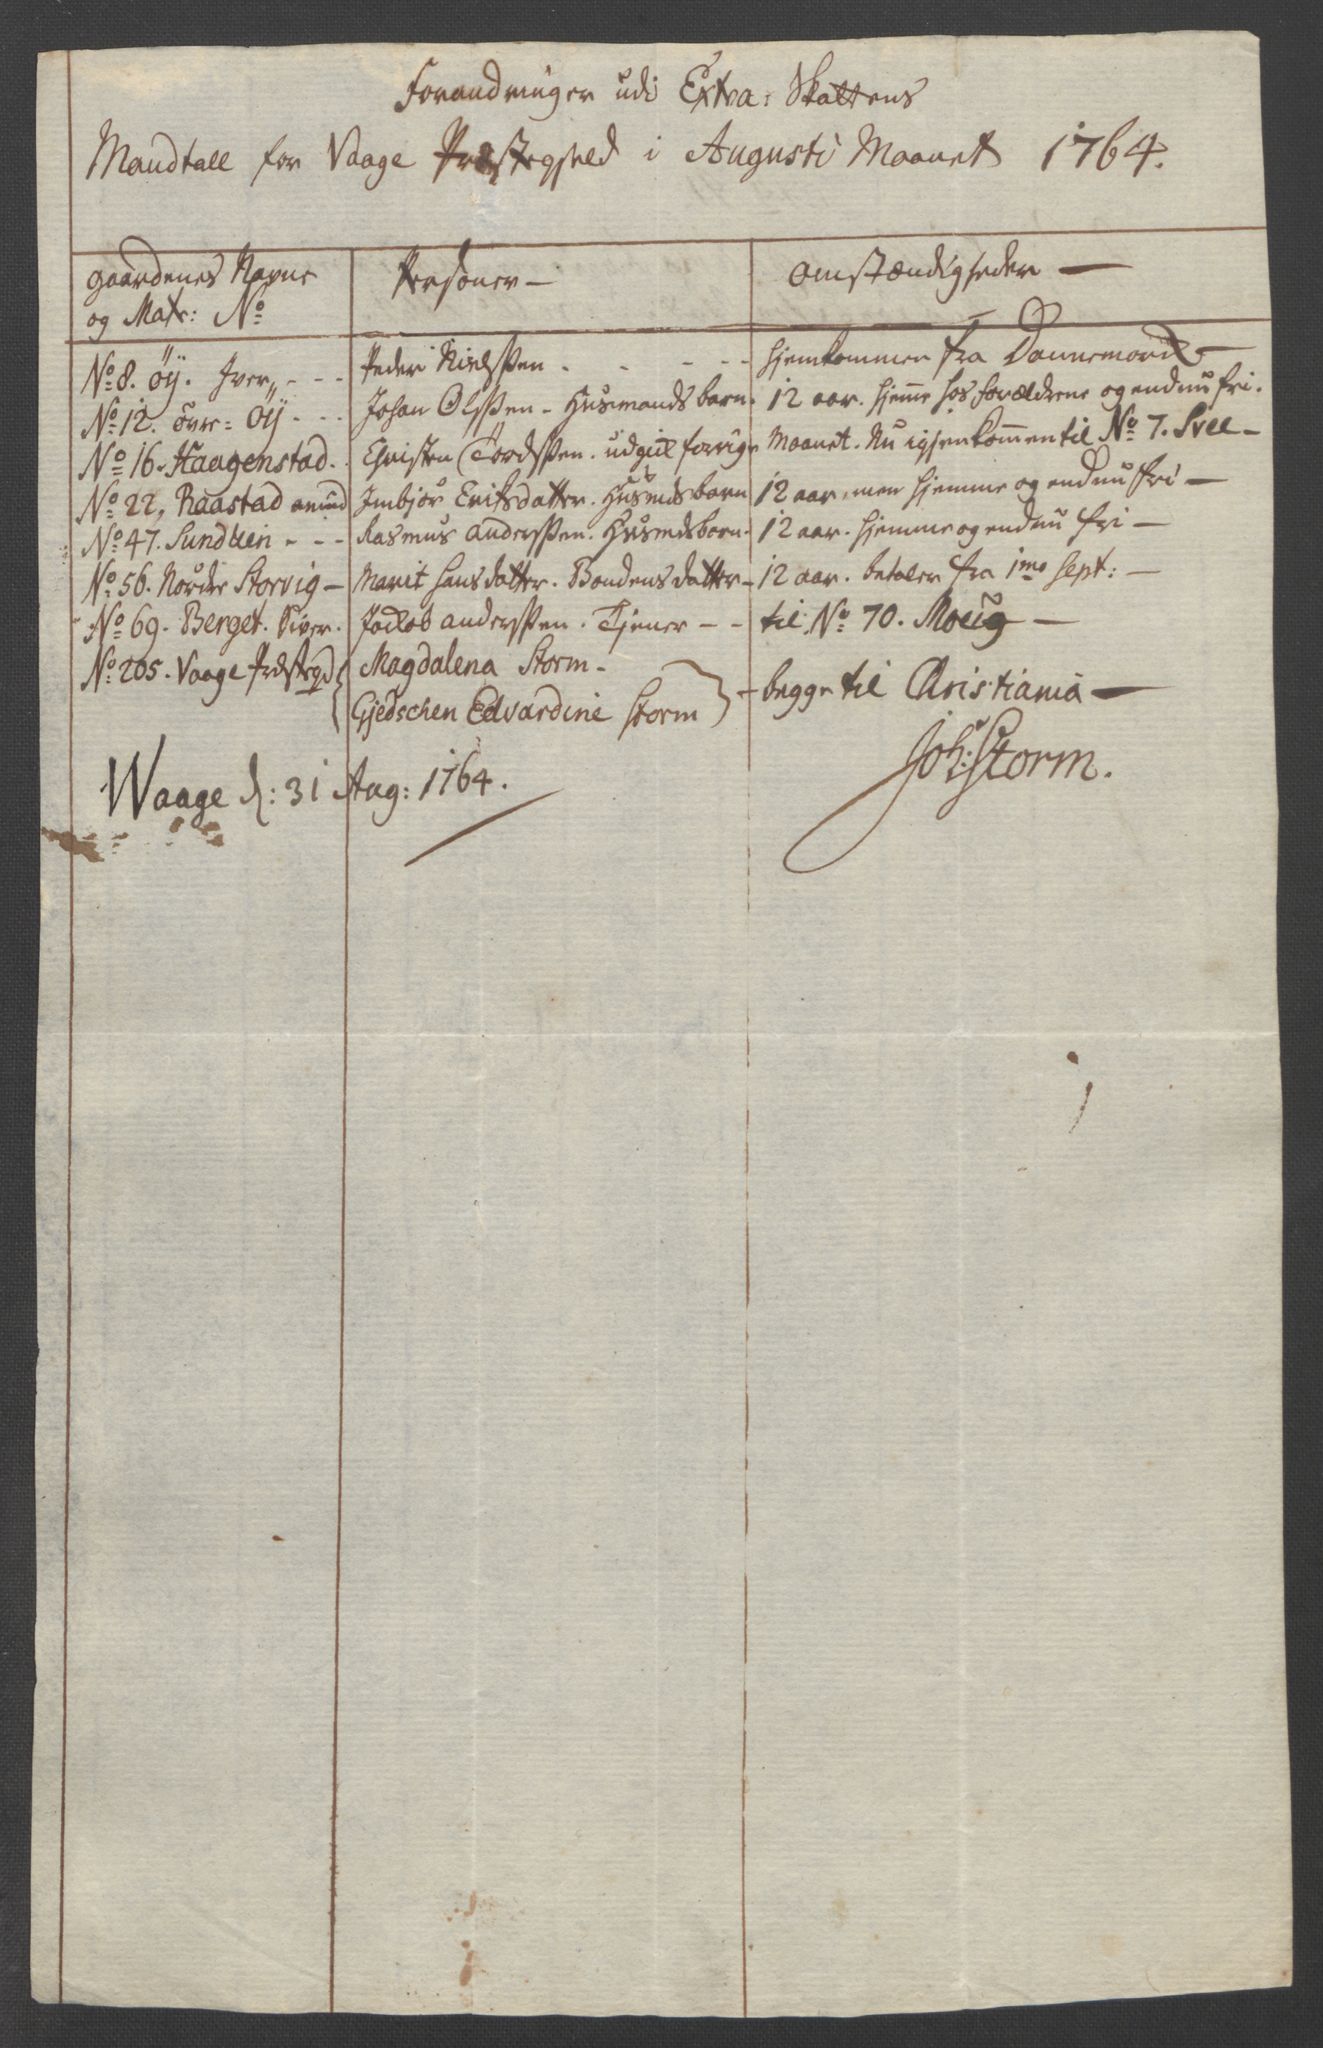 Forandringer udi Extra: Skattens
Mandtall for Vaage Præstegjeld i Augusti Maanet 1764.
gaardenes Navne og Matr: No | Personer – | Omstændigheder —
No 8. Öÿ. Iver, - - - | Peder Nielsßen - - - - | hjemkommen fra Dannemark —
No 12. övre = Öÿ - - - | Johan Olsßen - Husmands barn. | 12 aar. hjemme hos forældrene og endnu fri.
No 16. Haagenstad. | Christen Tordsßen. udgik forrige | Maanet. Nu igjenkommen til No 7. Svee –
No 22, Raastad amund | Imbjör Eriksdatter. Husmds barn | 12 aar, men hjemme og endnu fri —
No 47. Sundtien - - - | Rasmus andersßen. Husmdsbarn. | 12 aar. hjemme og endnu fri —
No 56. Nordre Storvig – | Marit hansdatter. Bondens datter – | 12 aar. betaler fra 1mo Sept: —
No 69. Berget. Siver. | Jackob andersßen. Tjener - - | til No 70. Moeig —
No 205. Vaage Præstegd | Magdalena Storm –
Gjedschen Edvardine Storm | begge til Christiania —
Joh: Storm.
Waage d: 31 Aug: 1764.